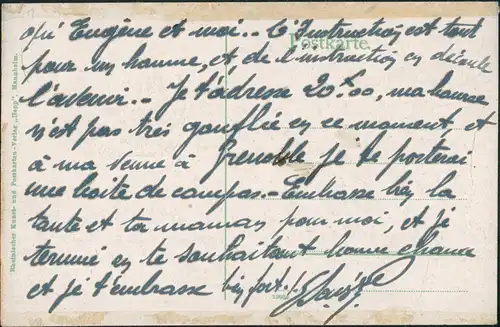 qu'Eugène et moi.- L'Instruction est tout
pour un homme, et de l'instruction en découle
l'avenir.- Je t'adresse 20 f.00, ma bourse
n'est pas très gonflée en ce moment, et
à ma venue à Grenoble je te porterai
une boite de compas.- Embrasse bien la
tante et ta maman pour moi, et je
termine en te souhaitant bonne chance
et je t'embrasse bien fort.
Postkarte.
Rheinischer Kunst- und Postkarten-Verlag Mannheim.